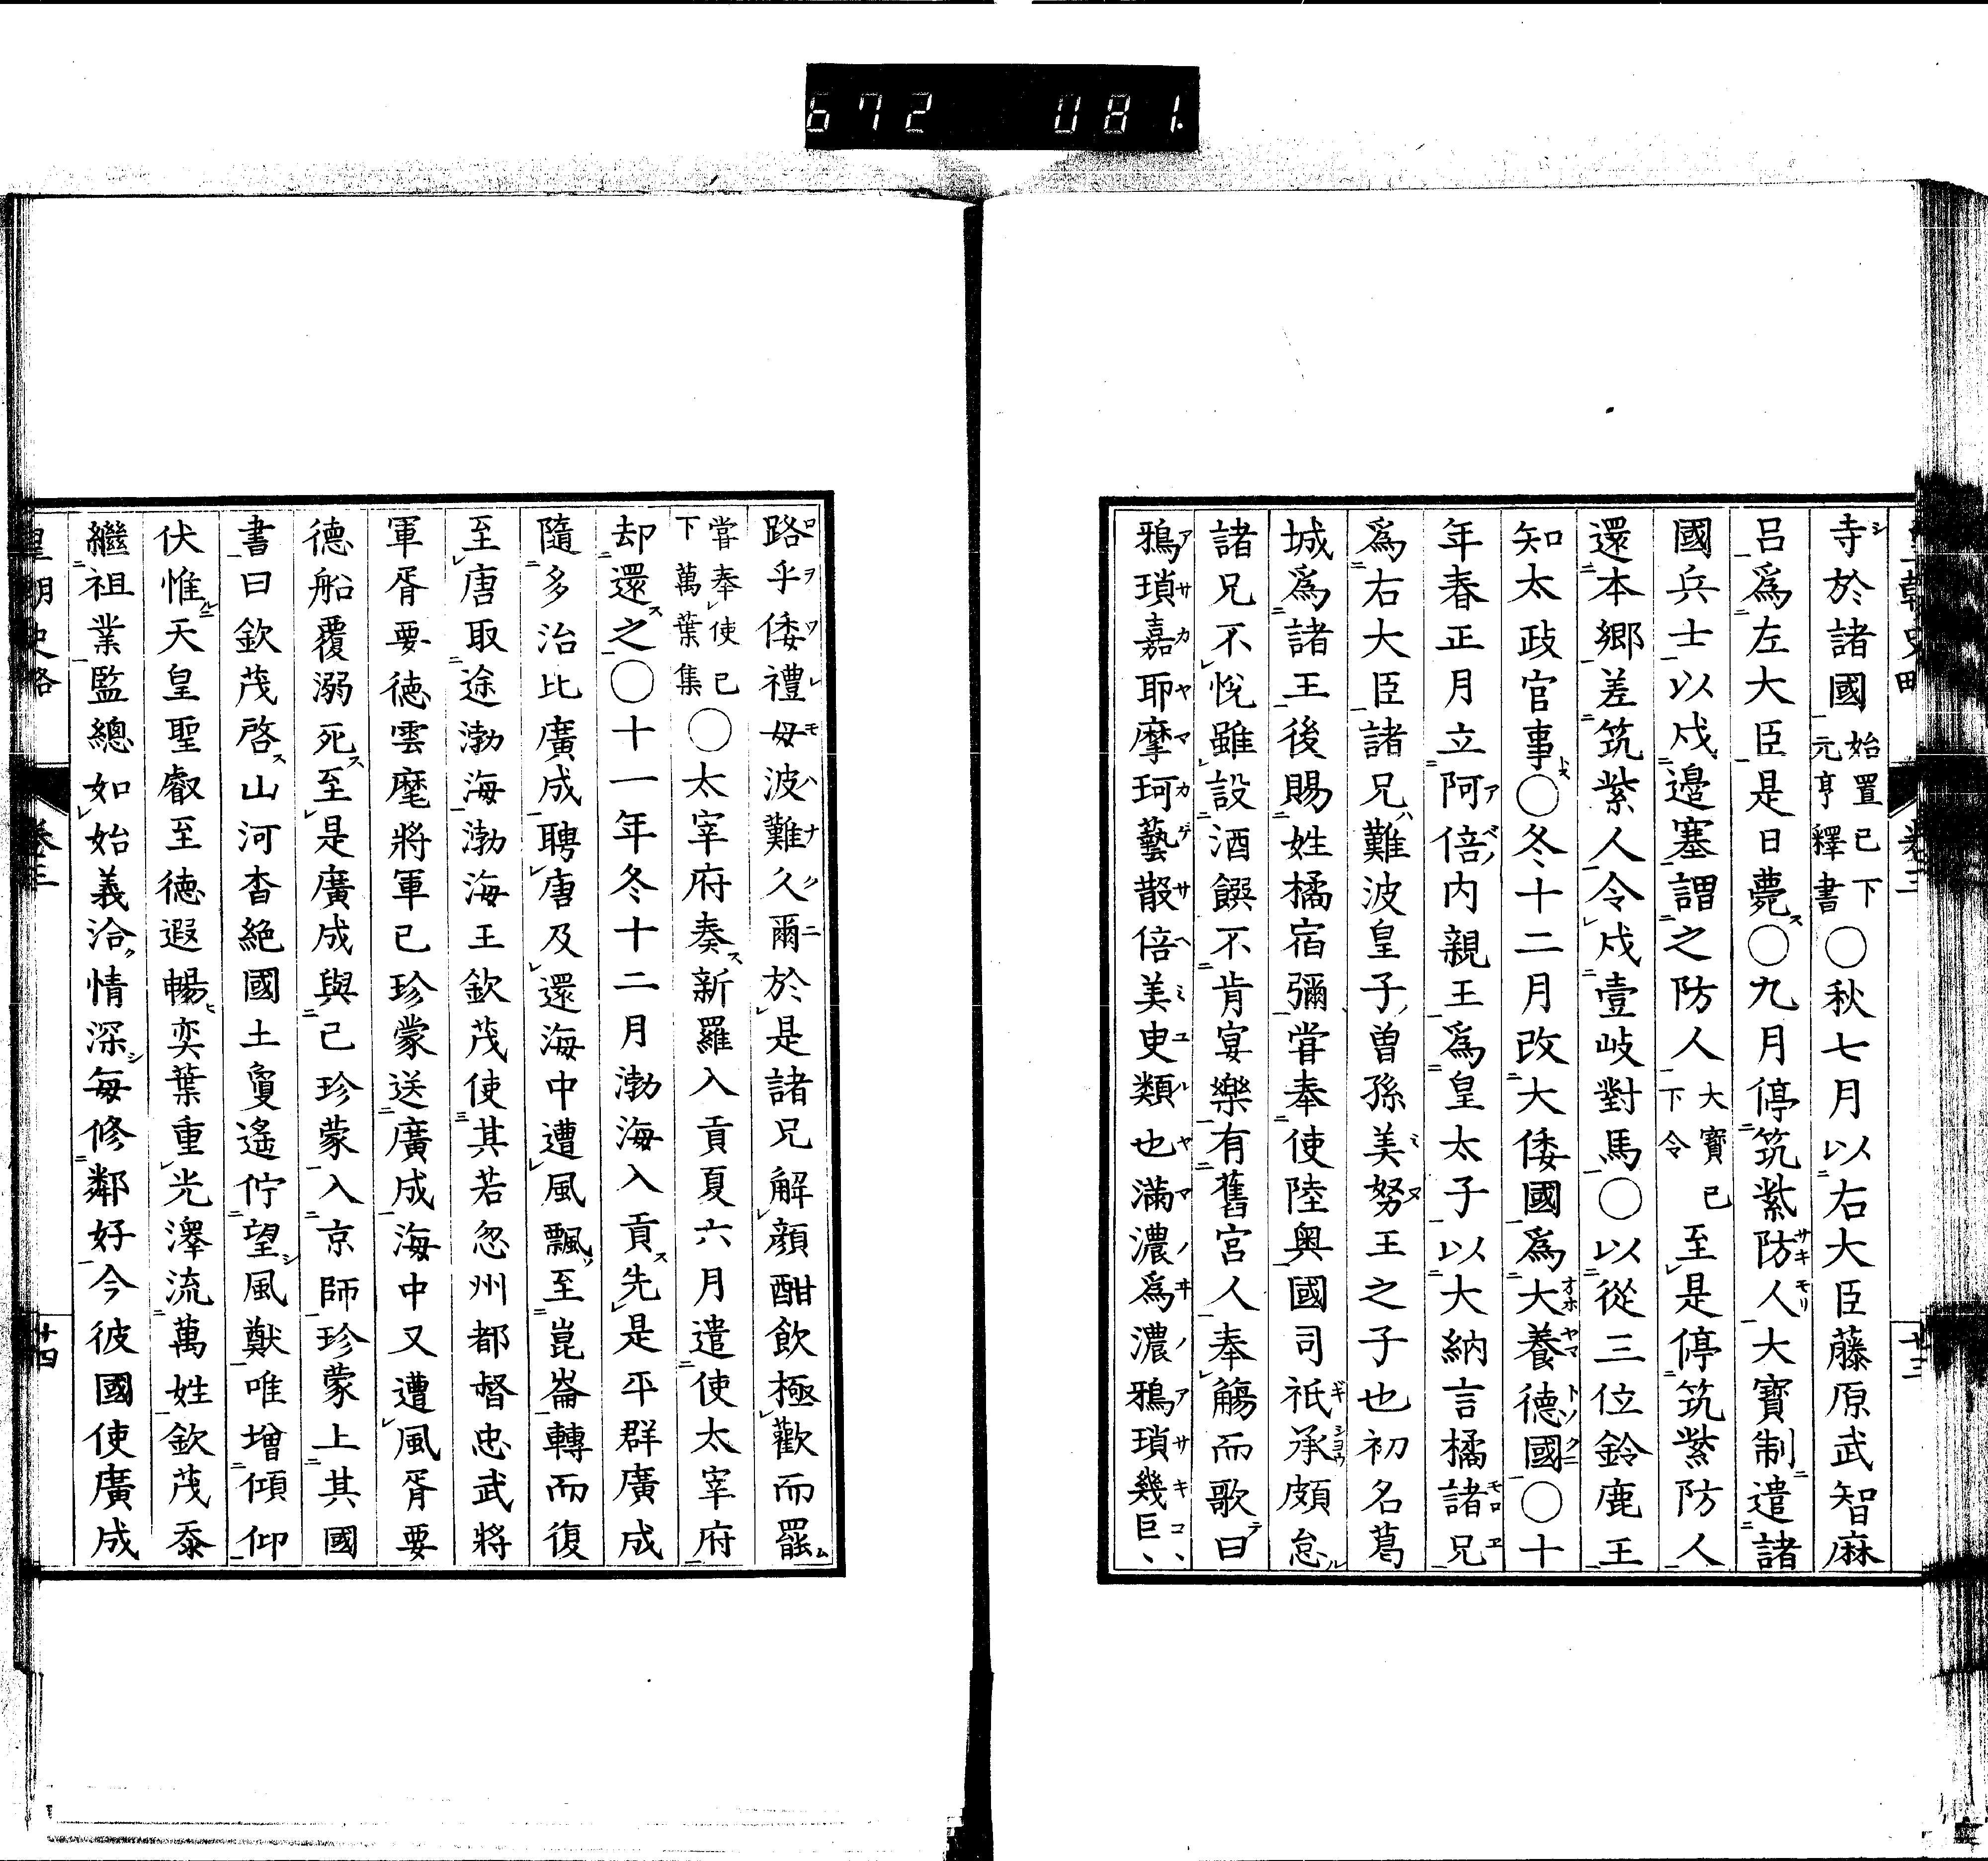 672 081.
寺於諸國始置已下元亨釋書〇秋七月以右大臣藤原武智麻
呂爲左大臣是日薨〇九月停筑紫防人大寶制遣諸
國兵士以戍邊塞謂之防人大寶已下令至是停筑紫防人
還本鄉差筑紫人令戍壹岐對馬〇以從三位鈴鹿王
知太政官事〇冬十二月改大倭國爲大養德國〇十
年春正月立阿倍内親王爲皇太子以大納言橘諸兄
爲右大臣諸兄難波皇子曽孫美努王之子也初名葛
城爲諸王後賜姓橘宿彌甞奉使陸奥國司祇承頗怠
諸兄不悅雖設酒饌不肯宴樂有舊宮人奉觴而歌曰
鴉瑣嘉耶摩珂藝散倍美曳類也滿濃爲濃鴉瑣幾巨、
路乎倭禮毋波難久爾於是諸兄解顏酣飲極歡而罷
甞奉使已下萬葉集〇太宰府奏新羅入貢夏六月遣使太宰府
却還之〇十一年冬十二月渤海入貢先是平群廣成
隨多治比廣成聘唐及還海中遭風飄至崑崙轉而復
至唐取途渤海渤海王欽茂使其若忽州都督忠武將
軍胥要德雲麾將軍已珍蒙送廣成海中又遭風胥要
德船覆溺死至是廣成與已珍蒙入京師珍蒙上其國
書曰欽茂啓山河杳絕國土敻遙佇望風猷唯增傾仰
伏惟天皇聖叡至德遐暢奕葉重光澤流萬姓欽茂忝
繼祖業監總如始義洽情深每修鄰好今彼國使廣成
皇朝史略 卷三 廿四